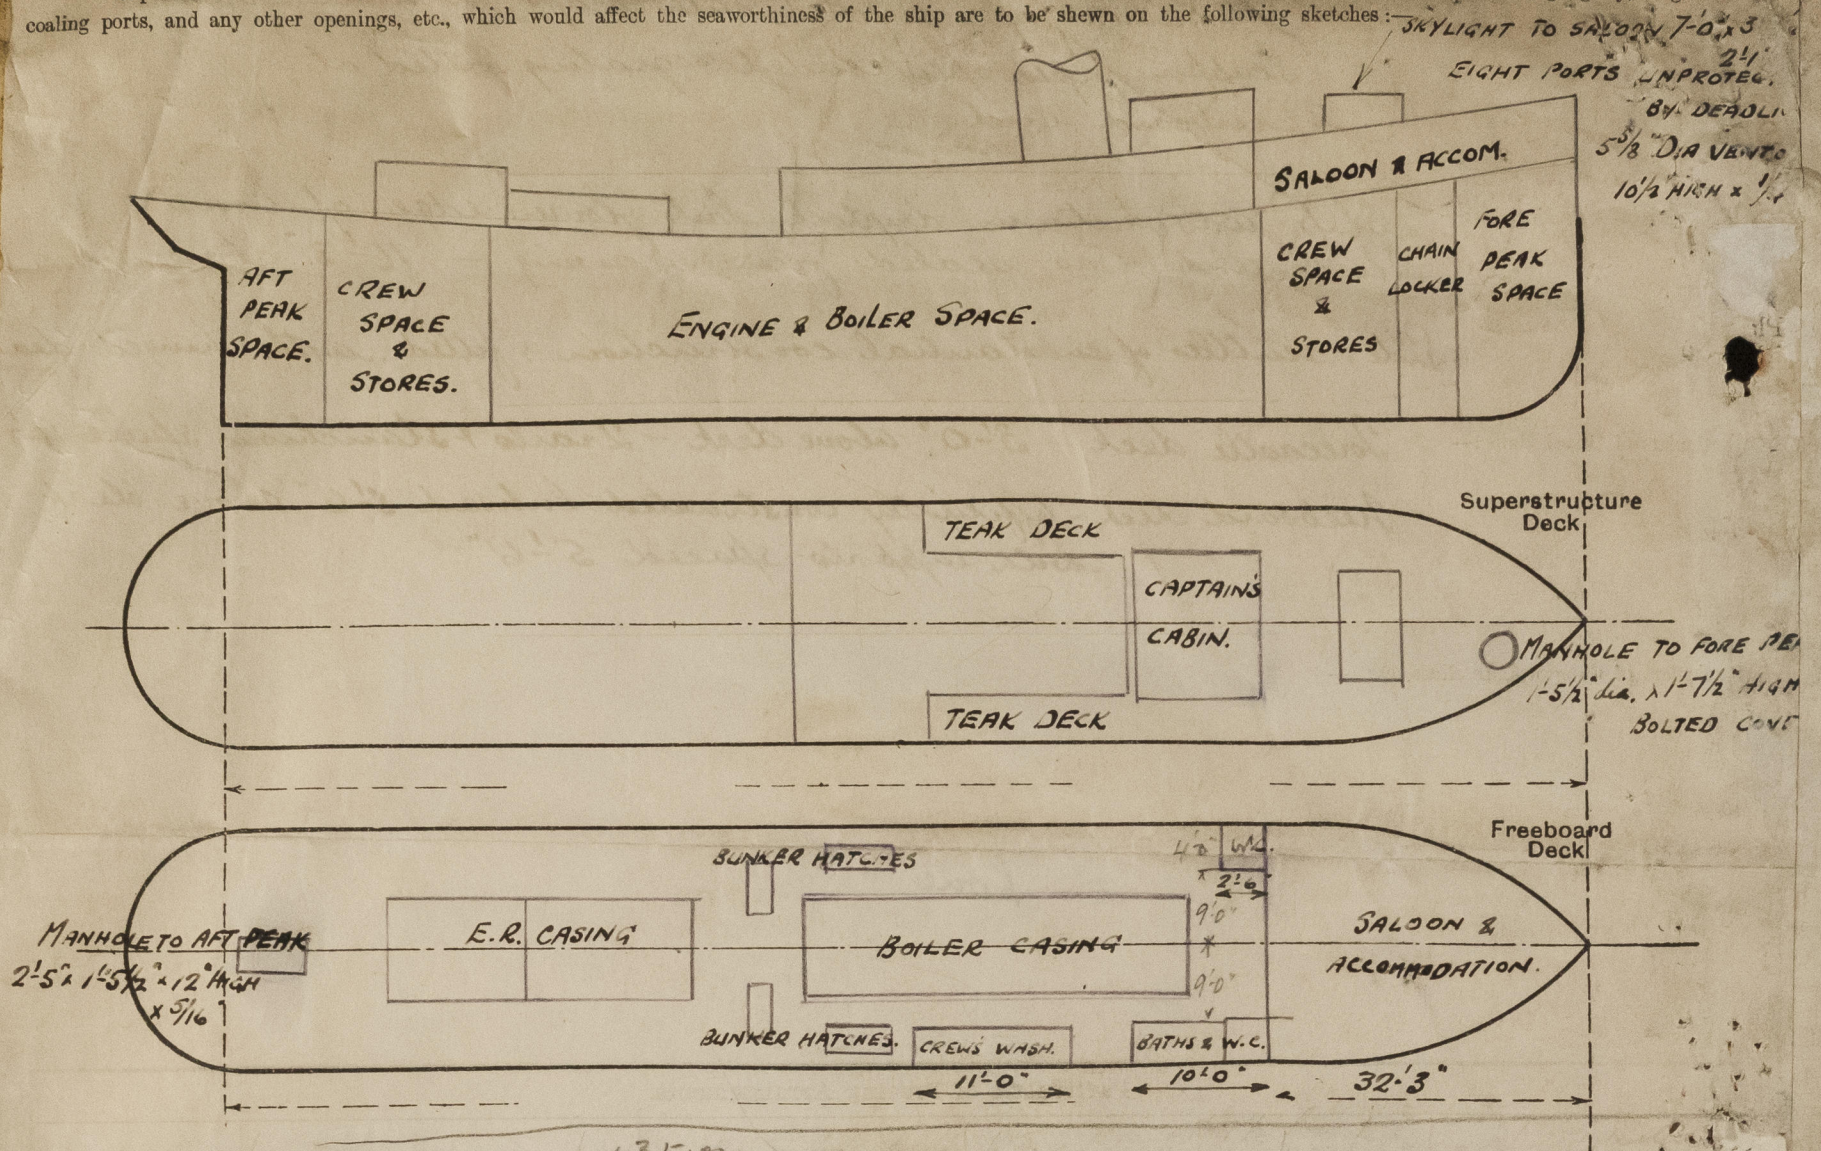 coaling ports, and any other openings, etc., which would affect the seaworthiness of the ship are to be shewn on the following sketches:—
SKYLIGHT TO SALOON 7'-0" x 3
2'-1"
EIGHT PORTS UNPROTEC.
BY DEADLI
5 5/8" DIA VENTS
10 1/2" HIGH x
SALOON & ACCOM.
AFT
PEAK
SPACE.
CREW
SPACE
&
STORES.
ENGINE & BOILER SPACE.
CREW
SPACE
&
STORES
CHAIN
LOCKER
FORE
PEAK
SPACE
Superstructure
Deck
TEAK DECK
CAPTAIN'S
CABIN.
TEAK DECK
MANHOLE TO FORE PEA
1'-5 1/2" dia. x 1'-7 1/2" HIGH
BOLTED COVE
Freeboard
Deck
BUNKER HATCHES
4'-0"
W.C.
2'-6"
9'-0"
9'-0"
MANHOLE TO AFT PEAK
2'-5" x 1'-5 1/2" x 12" HIGH
x 5/16"
E.R. CASING
BOILER CASING
SALOON &
ACCOMMODATION.
BUNKER HATCHES.
CREW'S WASH.
BATHS & W.C.
11'-0"
10'-0"
32'-3"